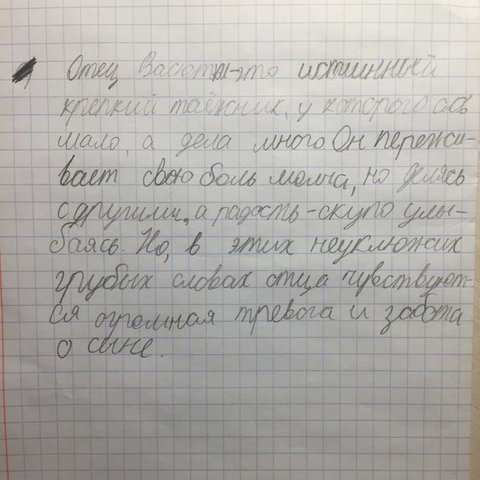 Отец Васютки-это истинный
крепкий таёжник, у которого слов
мало, а дела много Он пережи-
вает свою боль молча, но делясь
с другими, а радость-скупо улы-
баясь. Но, в этих неуклюжих
грубых словах отца чувствуют-
ся огромная тревога и забота
о сыне.